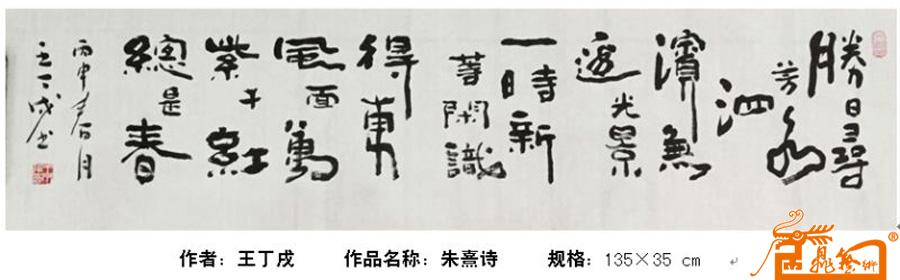 勝日尋
芳泗水
濱無
邊光景
一時新
等閑識
得東
風面萬
紫千紅
總是春
丙申春月
王丁戌书
作者：王丁戌 作品名称：朱熹诗 规格：135×35 cm